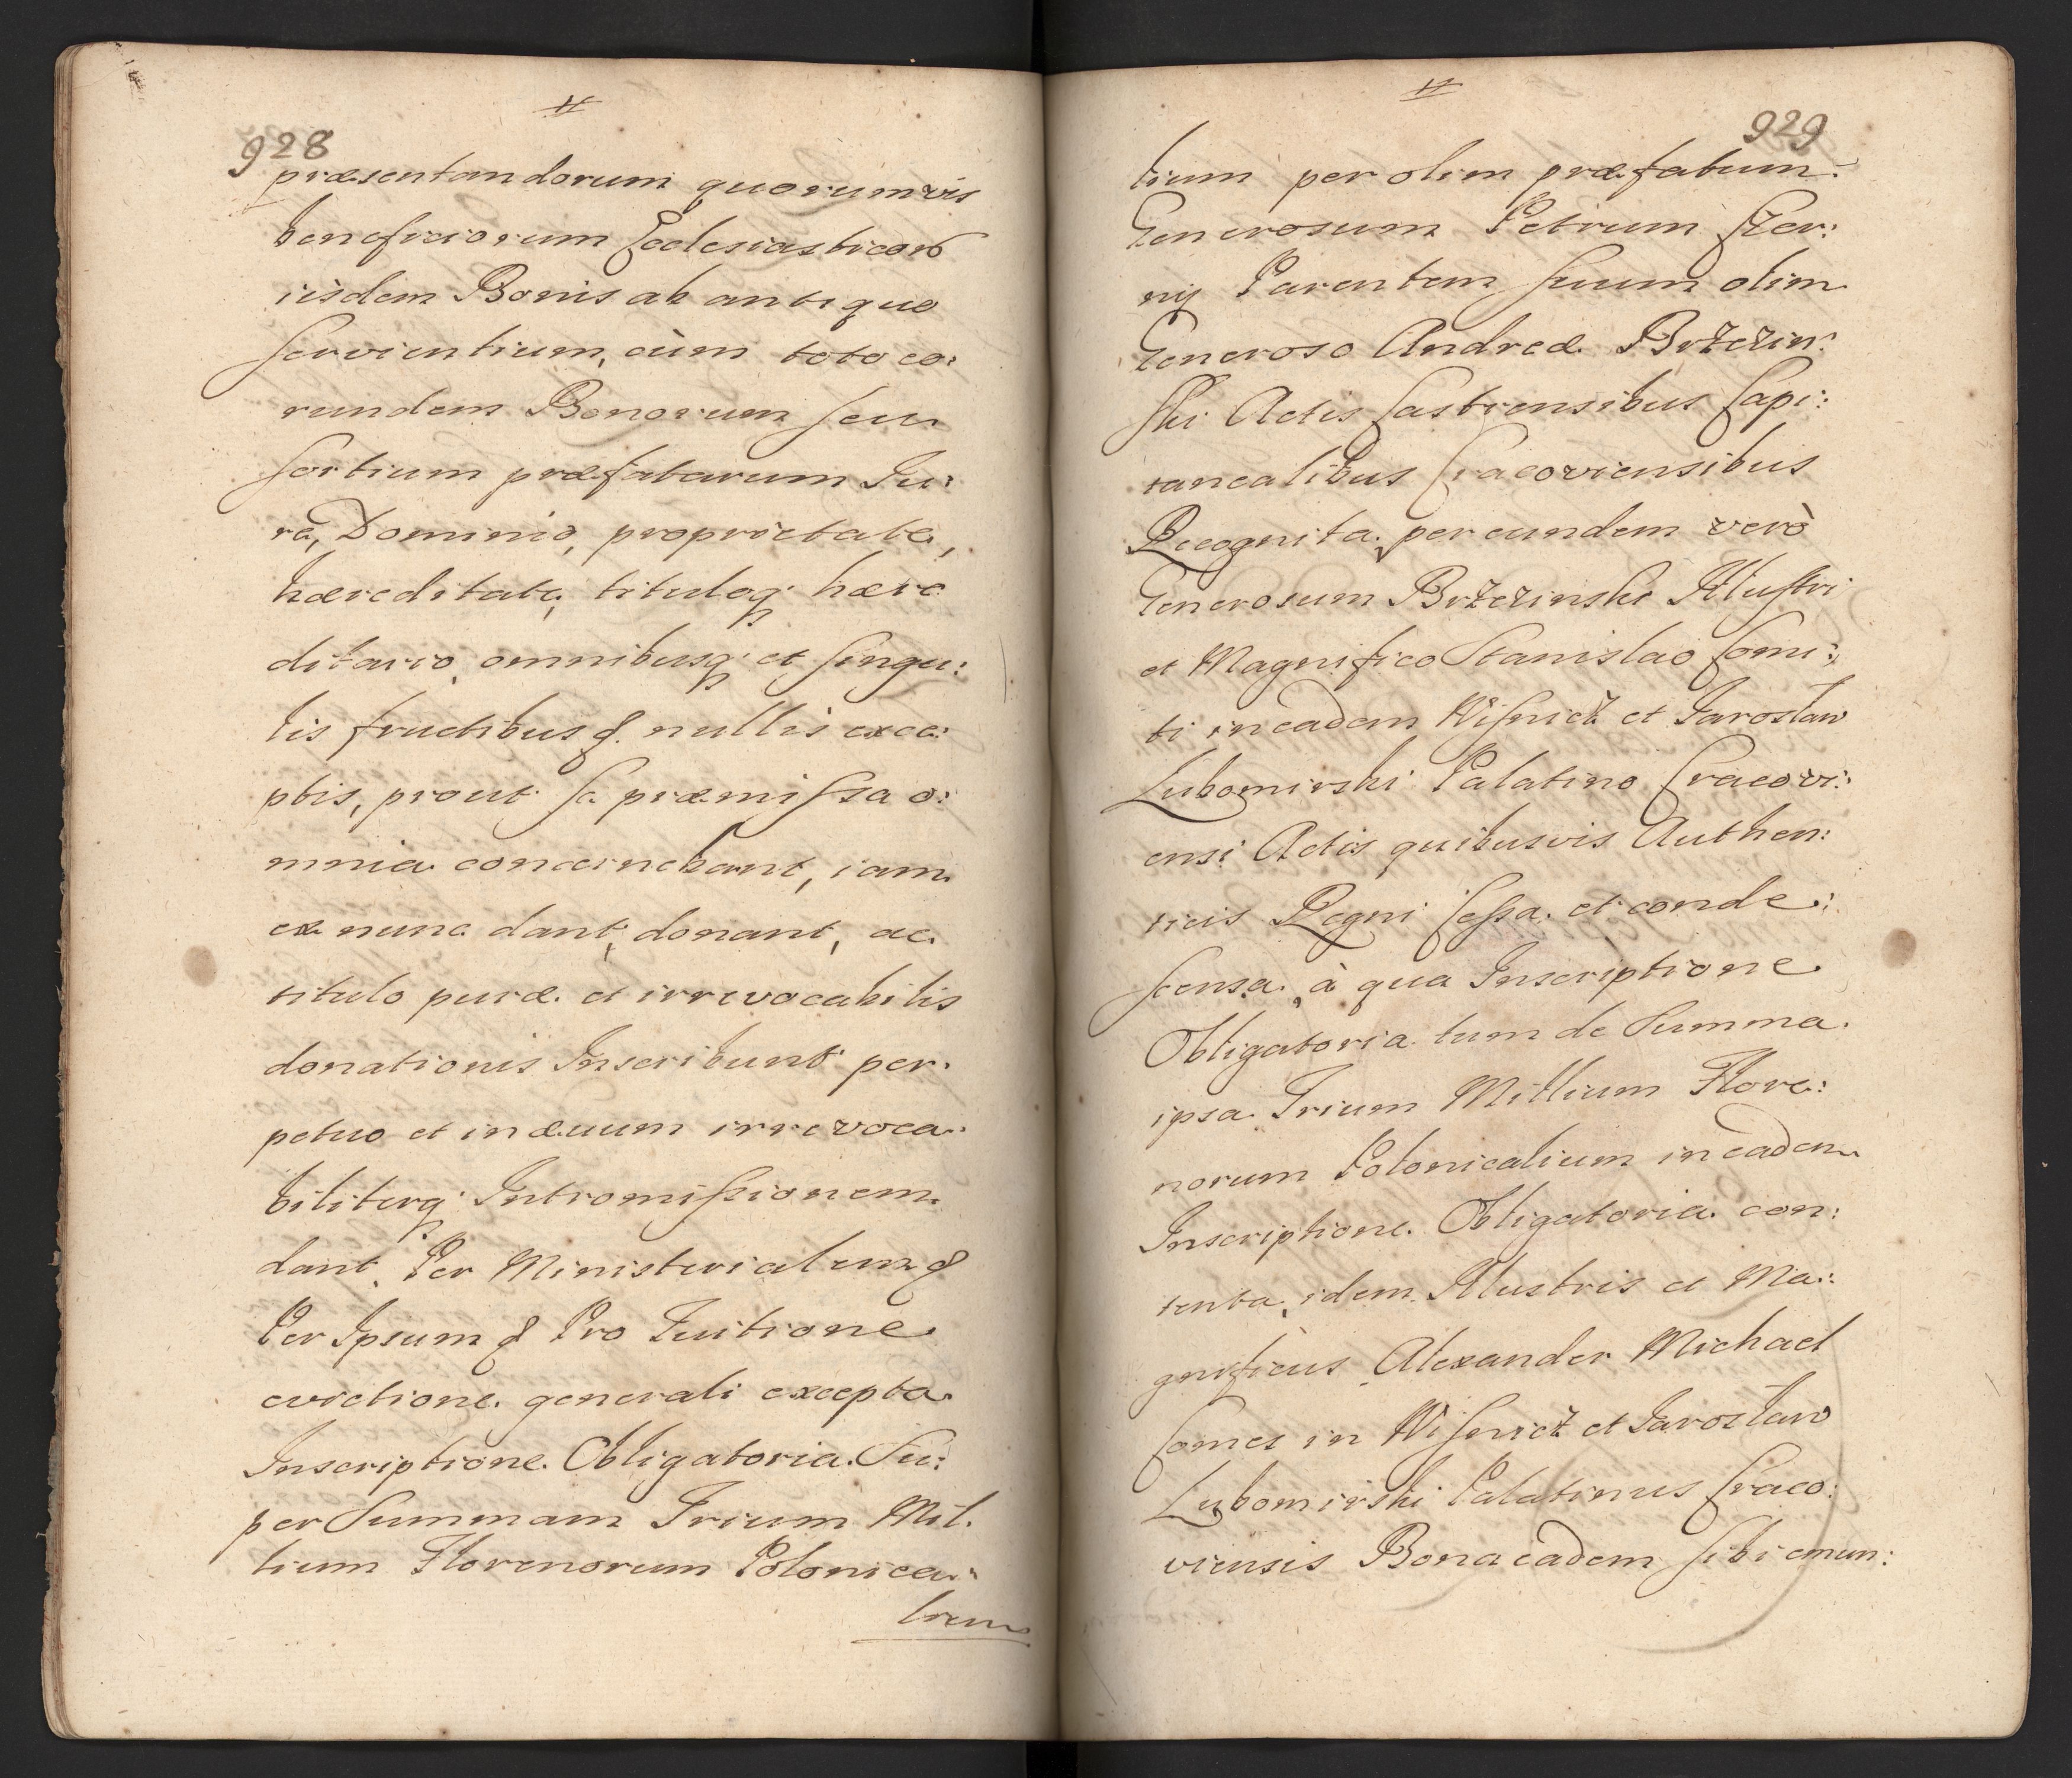 928
præsentandorum quorumvis
beneficiorum Ecclesiasticorū
iisdem Bonis ab antiquo
servientium, cùm toto eo:
rundem Bonorum seu
sortium præfatarum Iu:
re, Dominio, proprietate,
hæreditate, tituloq; hære
ditario, omnibusq; et singu:
lis fructibus &. nullis exce:
ptis, prout se præmissa o:
mnia concernebant, iam
ex nunc dant, donant, ac
titulo puræ et irrevocabilis
donationis Inscribunt per:
petuo et in ævum irrevoca:
biliterq; Intromissionem
dant. Per Ministerialem &
Per Ipsum & Pro Tuitione
evictione generali excepta
Inscriptione Obligatoria Su:
per Summam Trium Mil:
lium Florenorum Polonica:
lium
929
lium per olim præfatum
Generosum Petrum Czer:
ny Parentem suum olim
Generoso Andreæ Brzezin:
ski Actis Castrensibus Capi:
tanealibus Cracoviensibus
Recognita, per eundem verò
Generosum Brzezinski Illustri
et Magnifico Stanislao Comi:
ti in eadem Wisnicz et Iarosław
Lubomirski Palatino Cracovi:
ensi Actis quibusvis Authen:
ticis Regni Cessa et conde:
scensa, à qua Inscriptione
Obligatoria tum de Summa
ipsa Trium Millium Flore:
norum Polonicalium in eadem
Inscriptione Obligatoria con:
tenta, idem Illustris et Ma:
gnificus Alexander Michael
Comes in Wisnicz et Iarosław
Lubomirski Palatinus Craco:
viensis Bona eadem sibi emun: